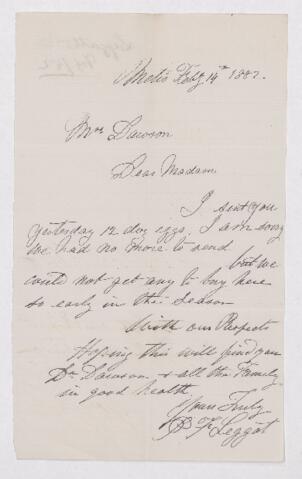 Metis Feby 14th 1882.
Mrs Dawson
Dear Madam
I sent you
yesterday 12 doz eggs. I am sorry
we had no more to send
but we
could not get any to buy here
so early in the season
With our Respects
Hoping this will find you
Dr Dawson & all the Family
in good health.
Yours Truly
Leggat